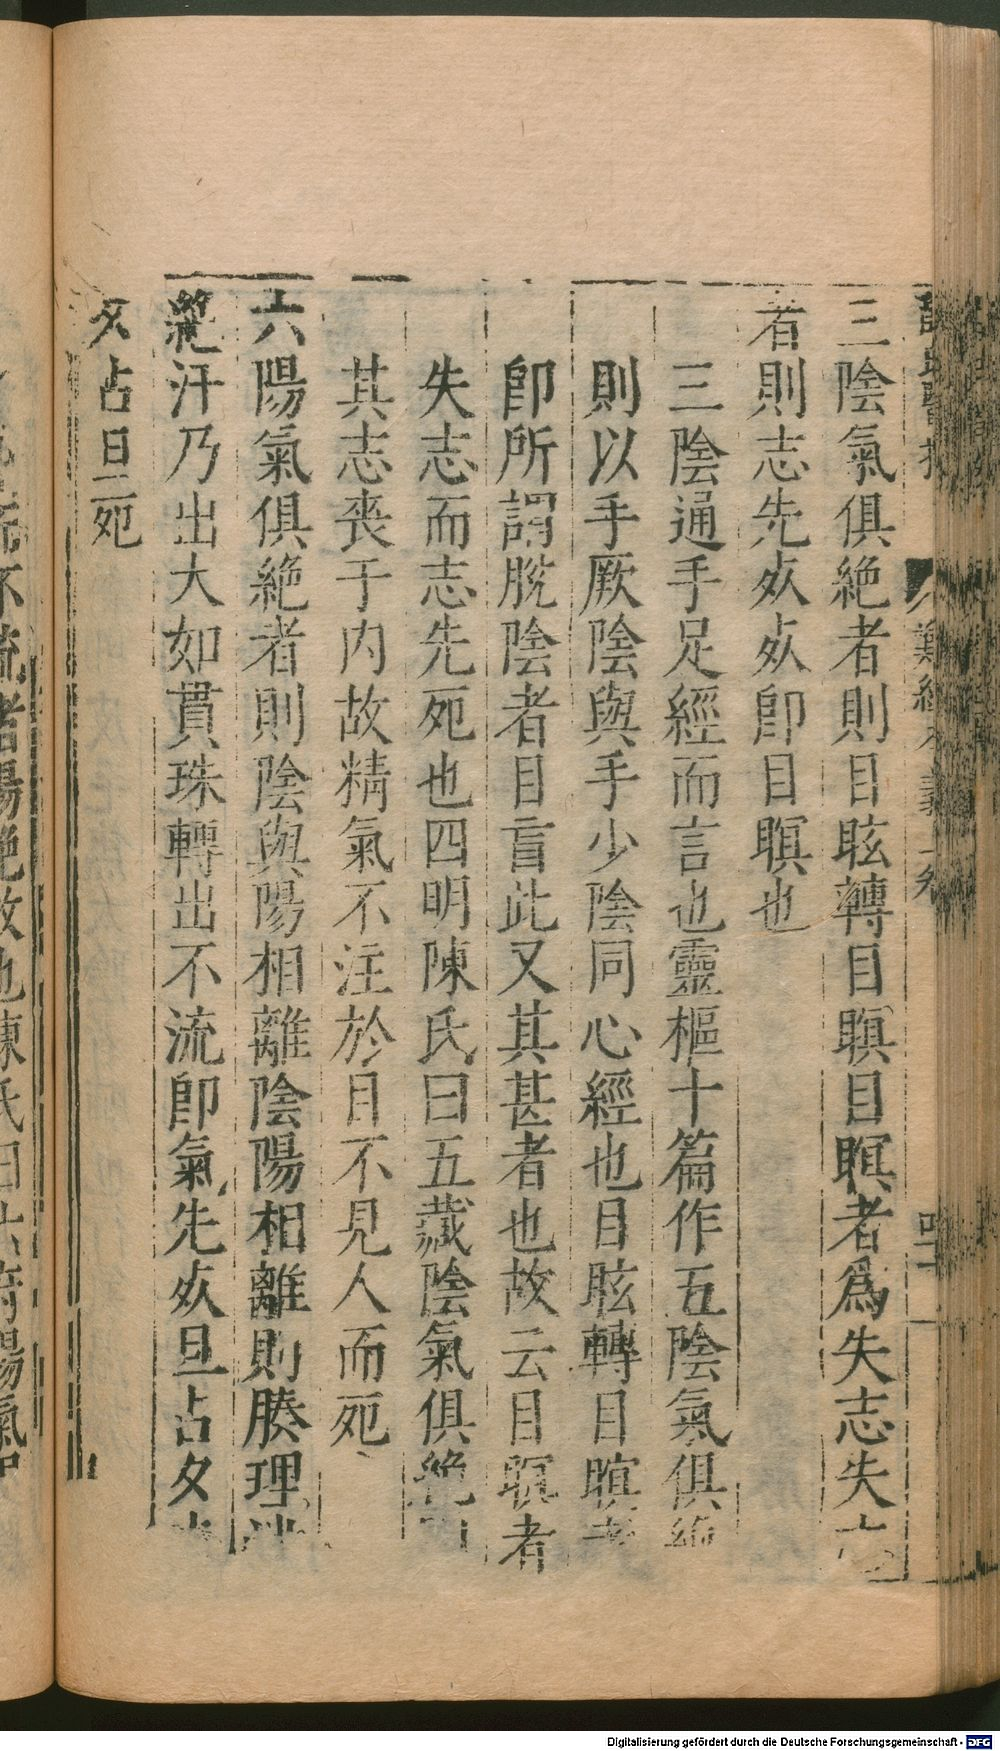 三陰氣俱絶者則目眩轉目瞑目瞑者爲失志失志
者則志先死死即目瞑也
三陰通手足經而言也靈樞十篇作五陰氣俱絶
則以手厥陰與手少陰同心經也目眩轉目瞑者
即所謂脫陰者目盲此又其甚者也故云目瞑者
失志而志先死也四明陳氏曰五藏陰氣俱絶
其志喪于内故精氣不注於目不見人而死
六陽氣俱絶者則陰與陽相離陰陽相離則腠理
絶汗乃出大如貫珠轉出不流即氣先死旦占夕
夕占旦死
難經本義
Digitalisierung gefördert durch die Deutsche Forschungsgemeinschaft - DFG